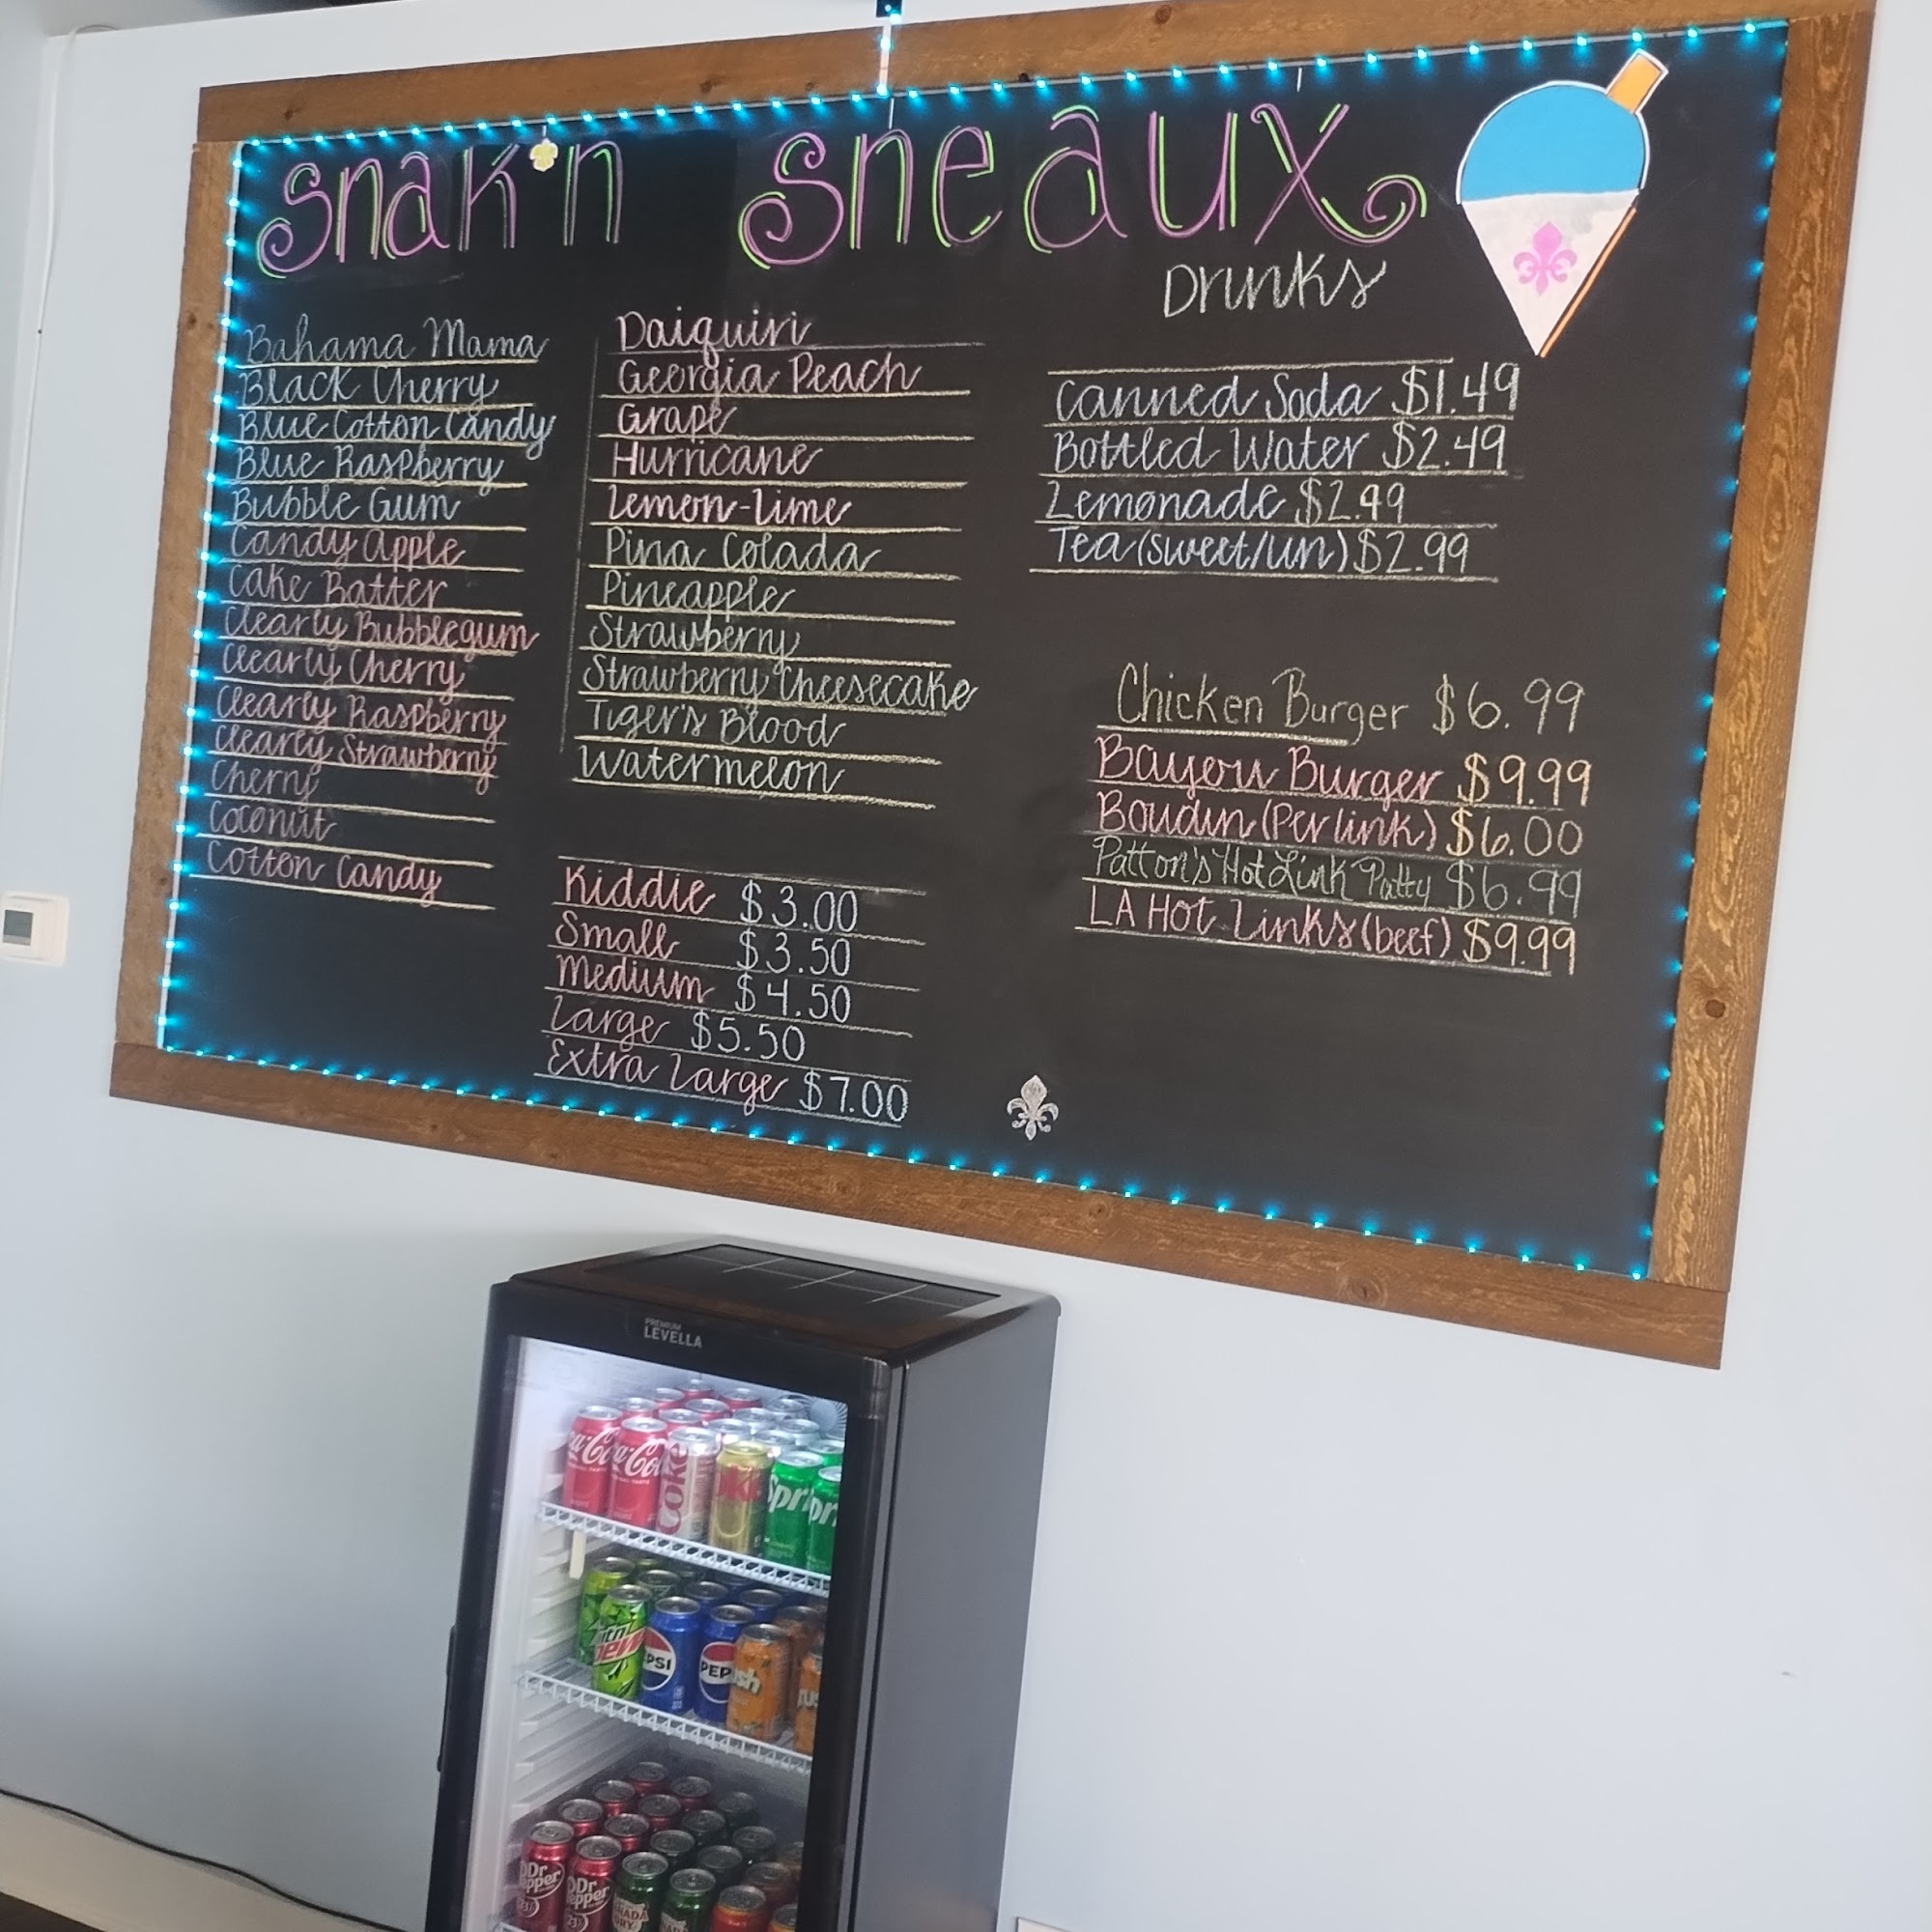 Snak'n Sneaux
Bahama Mama
Black Cherry
Blue Cotton Candy
Blue Raspberry
Bubble Gum
Candy Apple
Cake Batter
Clearly Bubblegum
Clearly Cherry
Clearly Raspberry
Clearly Strawberry
Cherry
Coconut
Cotton Candy
Daiquiri
Georgia Peach
Grape
Hurricane
Lemon-Lime
Pina Colada
Pineapple
Strawberry
Strawberry Cheesecake
Tiger's Blood
Watermelon
Kiddie $3.00
Small $3.50
Medium $4.50
Large $5.50
Extra Large $7.00
Drinks
Canned Soda $1.49
Bottled Water $2.49
Lemonade $2.99
Tea (sweet/un) $2.99
Chicken Burger $6.99
Bayou Burger $9.99
Boudin (Per link) $6.00
Patton's Hot Link Patty $6.99
LA Hot Links (beef) $9.99
PREMIUM
LEVELLA
Coca-Cola
Coke
Sprite
Mtn Dew
PEPSI
PEPSI
Crush
Dr Pepper
23
Dr Pepper
23
CANADA DRY